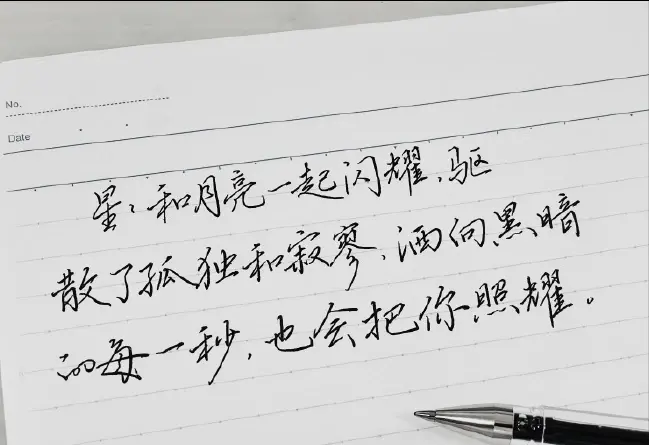 No.
Date
星星和月亮一起闪耀,驱
散了孤独和寂寥,洒向黑暗
的每一秒,也会把你照耀。